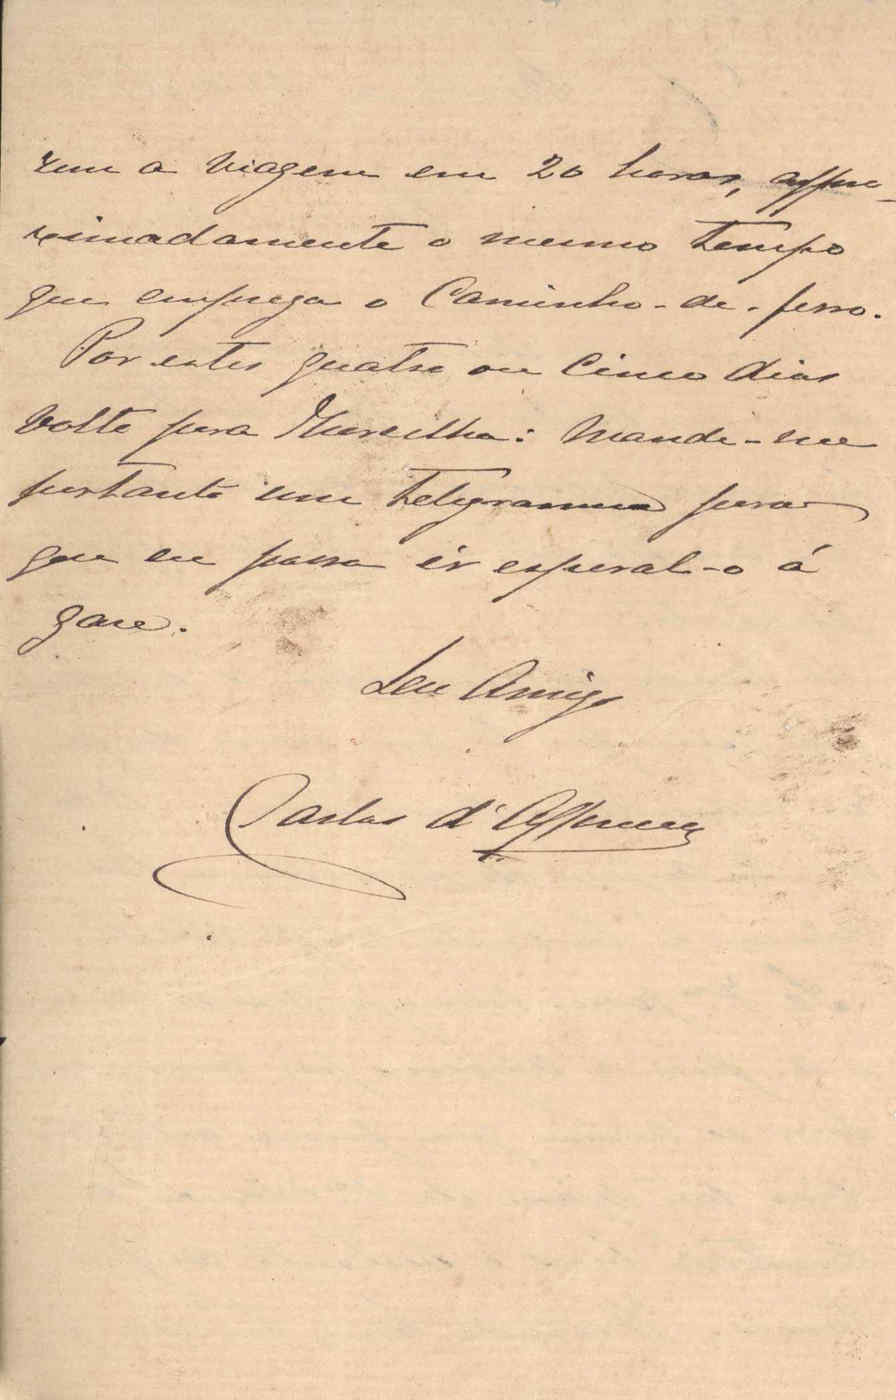 zem a viagem em 20 horas, appro-
ximadamente o mesmo tempo
que emprega o Caminho-de-ferro.
Por estes quatro ou cinco dias
volto para Marselha: mande-me
portanto um telegramma para
que eu possa ir esperal-o á
gare.
Seu Amigo
Carlos d'